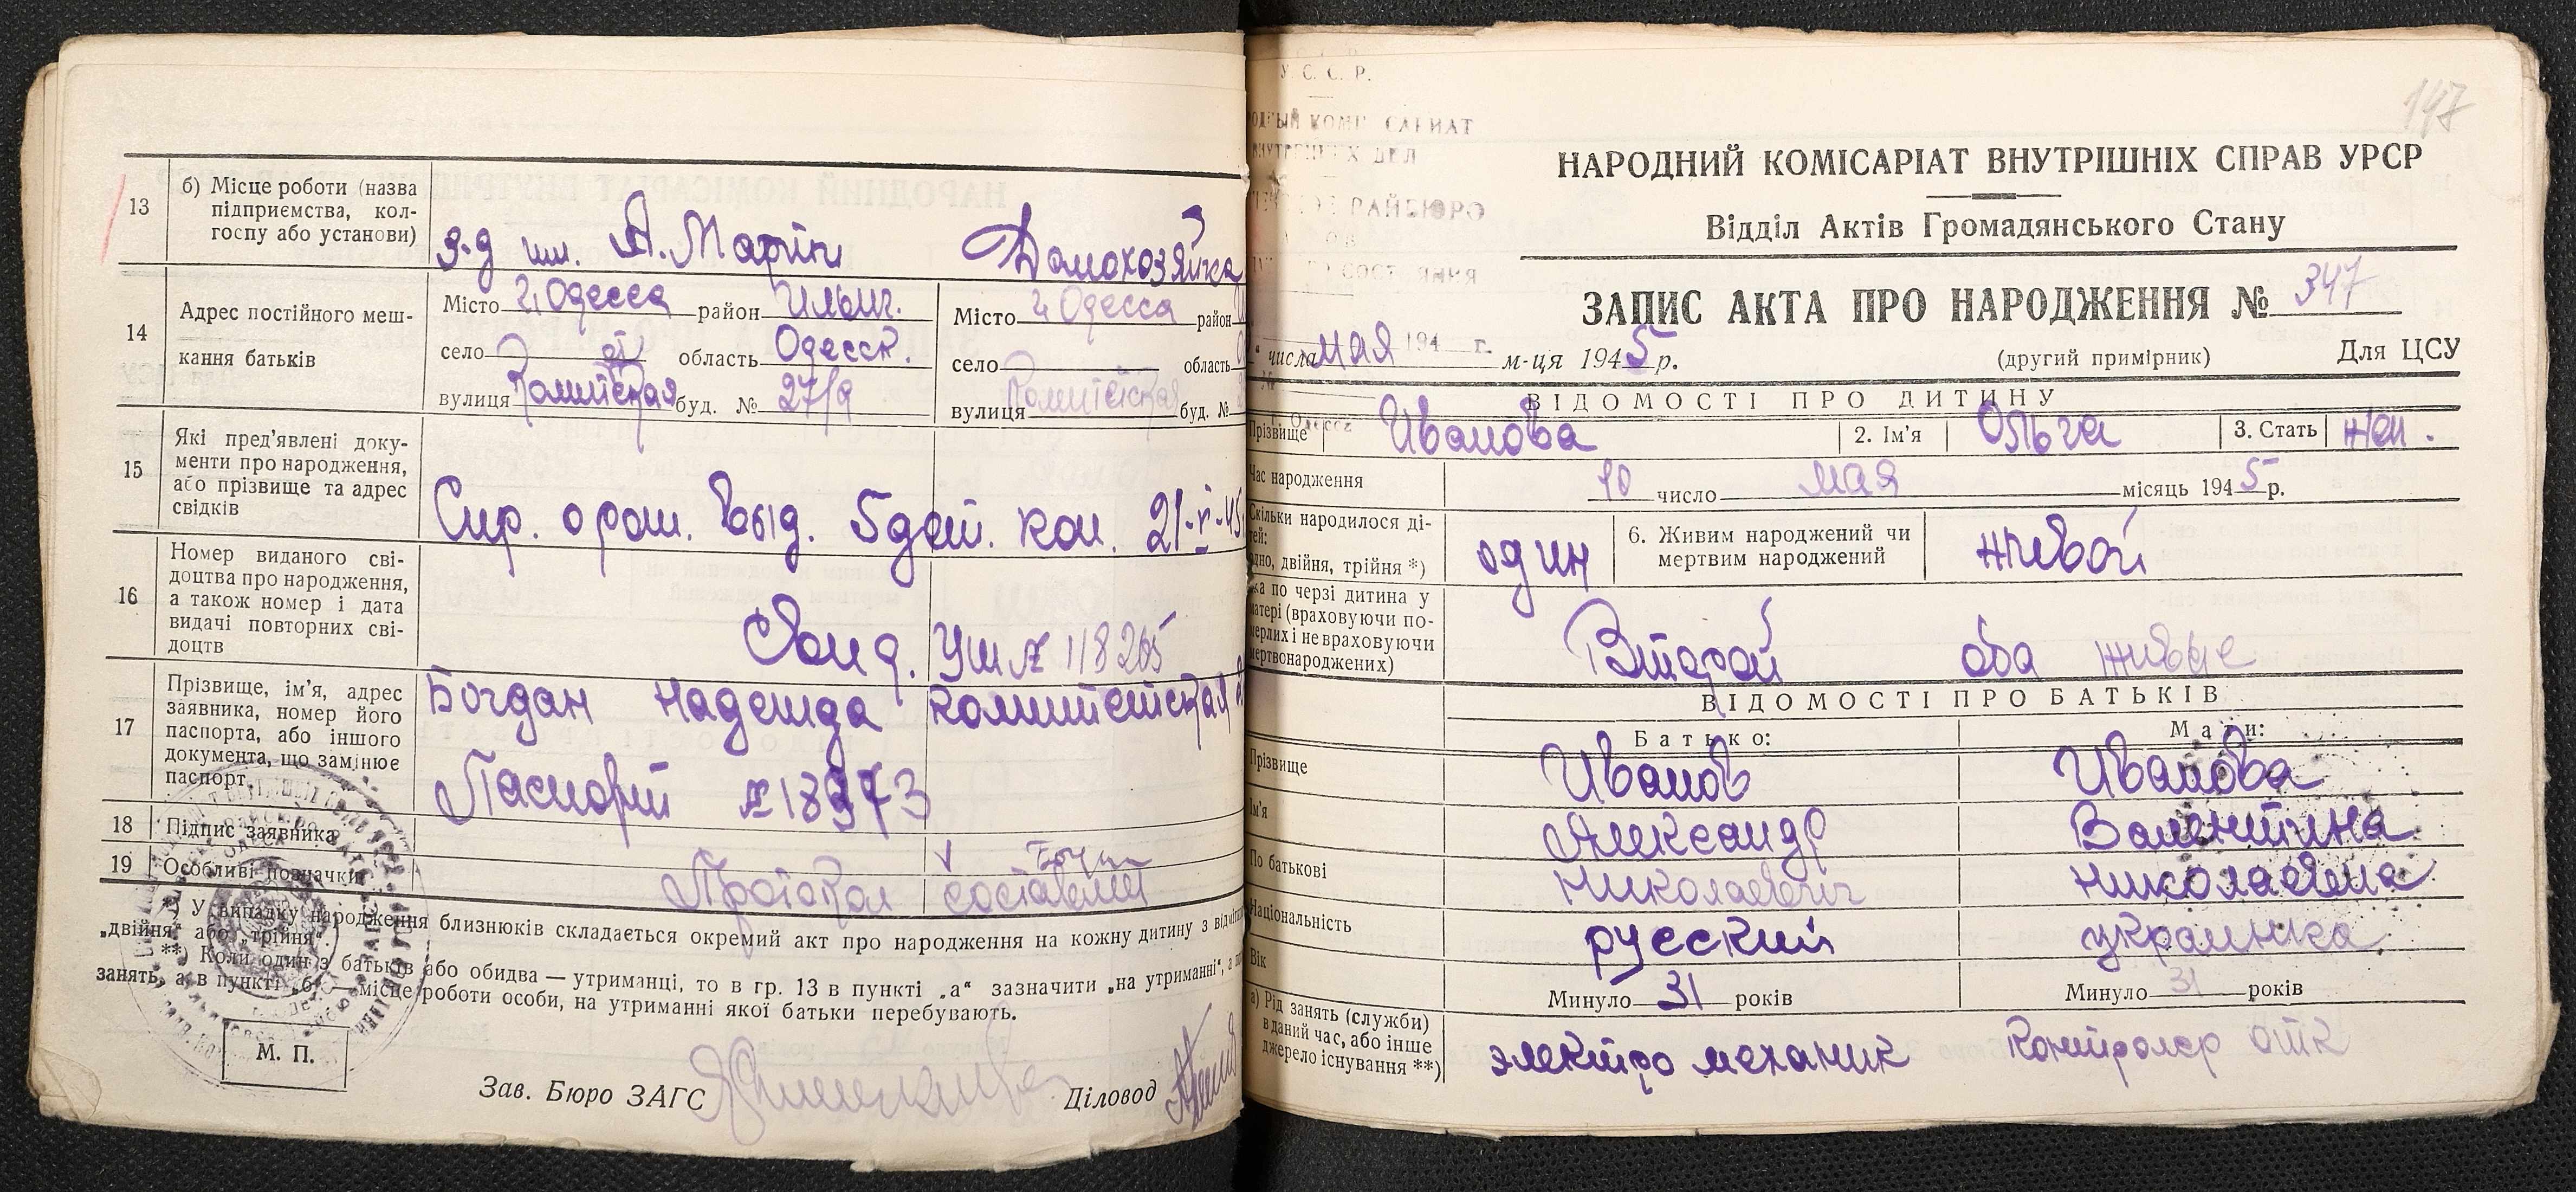 13
б) Місце роботи (назва
підприємства, кол-
госпу або установи)
з-д им. А. Марти Домохозяйка
14
Адрес постійного меш-
кання батьків
Місто г. Одесса район Ильич.
село область Одесск.
вулиця буд. № 27/9
Місто г Одесса район
село область
вулиця буд. №
15
Які пред'явлені доку-
менти про народження,
або прізвище та адрес
свідків
Спр. о рож. выд. 5 кон. 21-V-45
16
Номер виданого сві-
доцтва про народження,
а також номер і дата
видачі повторних сві-
доцтв
Свид. УШ № 118265
17
Прізвище, ім'я, адрес
заявника, номер його
паспорта, або іншого
документа, що замінює
паспорт
Богдан Надежда
Паспорт №
18 Підпис заявника
19 Особливі позначки
Протокол составлен
*) У випадку народження близнюків складається окремий акт про народження на кожну дитину з
„двійня“ або „трійня“.
**) Коли один з батьків або обидва — утриманці, то в гр. 13 в пункті „а“ зазначити „на утриманні“, а
занять, а в пункті „б“ — місце роботи особи, на утриманні якої батьки перебувають.
М. П.
Зав. Бюро ЗАГС Діловод
147
У. С. С. Р.
РАЙБЮРО
НАРОДНИЙ КОМІСАРІАТ ВНУТРІШНІХ СПРАВ УРСР
Відділ Актів Громадянського Стану
ЗАПИС АКТА ПРО НАРОДЖЕННЯ № 347
числа мая 194 г. м-ця 1945 р. (другий примірник) Для ЦСУ
ВІДОМОСТІ ПРО ДИТИНУ
Прізвище Иванова 2. Ім'я Ольга 3. Стать жен.
Час народження 10 число мая місяць 1945 р.
Скільки народилося ді-
тей:
одно, двійня, трійня *)
один
6. Живим народжений чи
мертвим народжений
живой
по черзі дитина у
матері (враховуючи по-
мерлих і не враховуючи
мертвонароджених)
Второй оба живые
ВІДОМОСТІ ПРО БАТЬКІВ
Батько: Мати:
Прізвище Иванов Иванова
Ім'я Александр Валентина
По батькові Николаевич Николаевна
Національність русский украинка
Вік Минуло 31 років Минуло 31 років
а) Рід занять (служби)
в даний час, або інше
джерело існування **)
электро механик Контролер отк